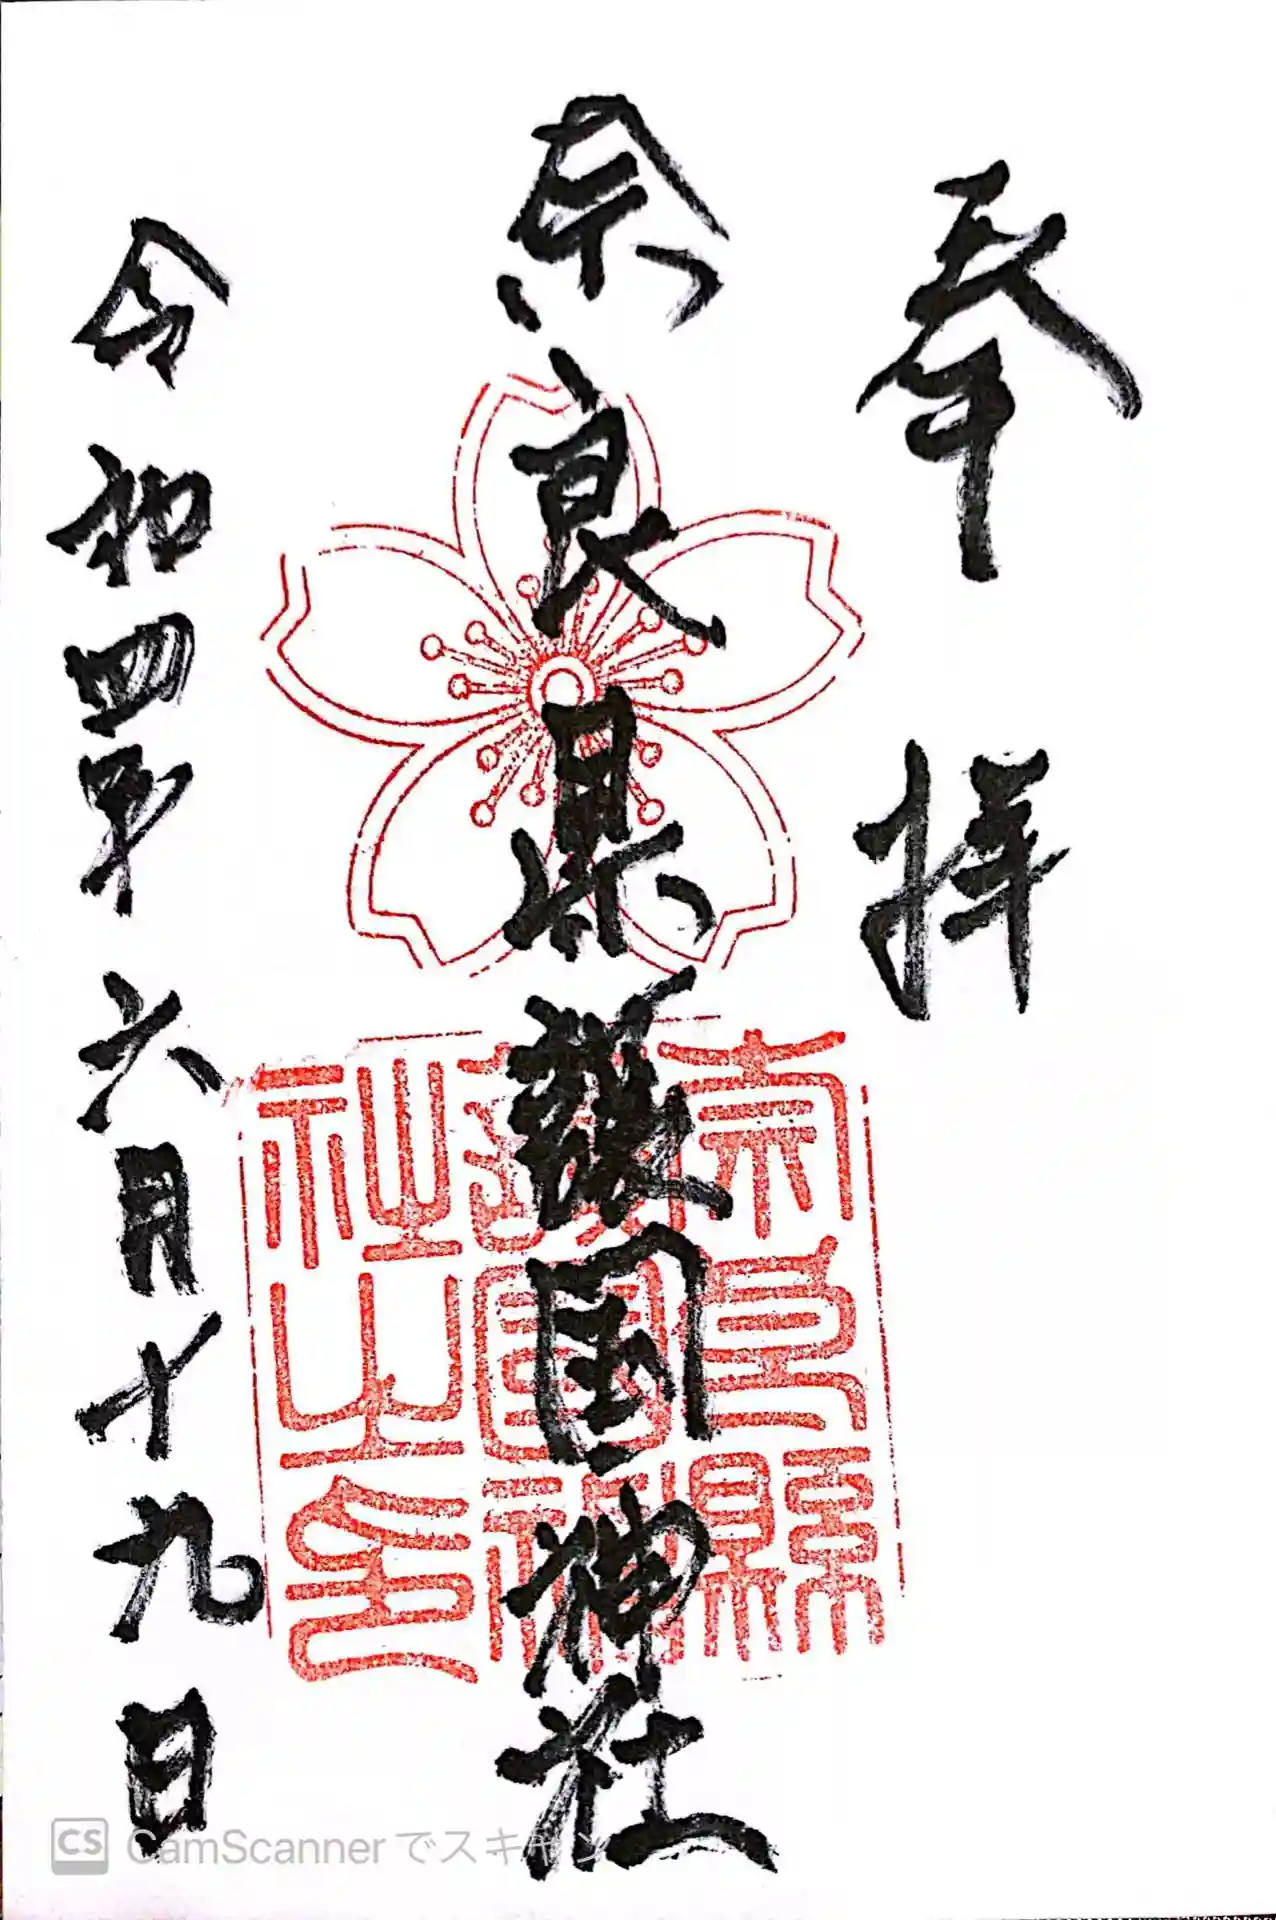 奉拝
奈良県護国神社
奈良縣
護國神
社之印
令和四年六月十九日
CS CamScannerでスキャン